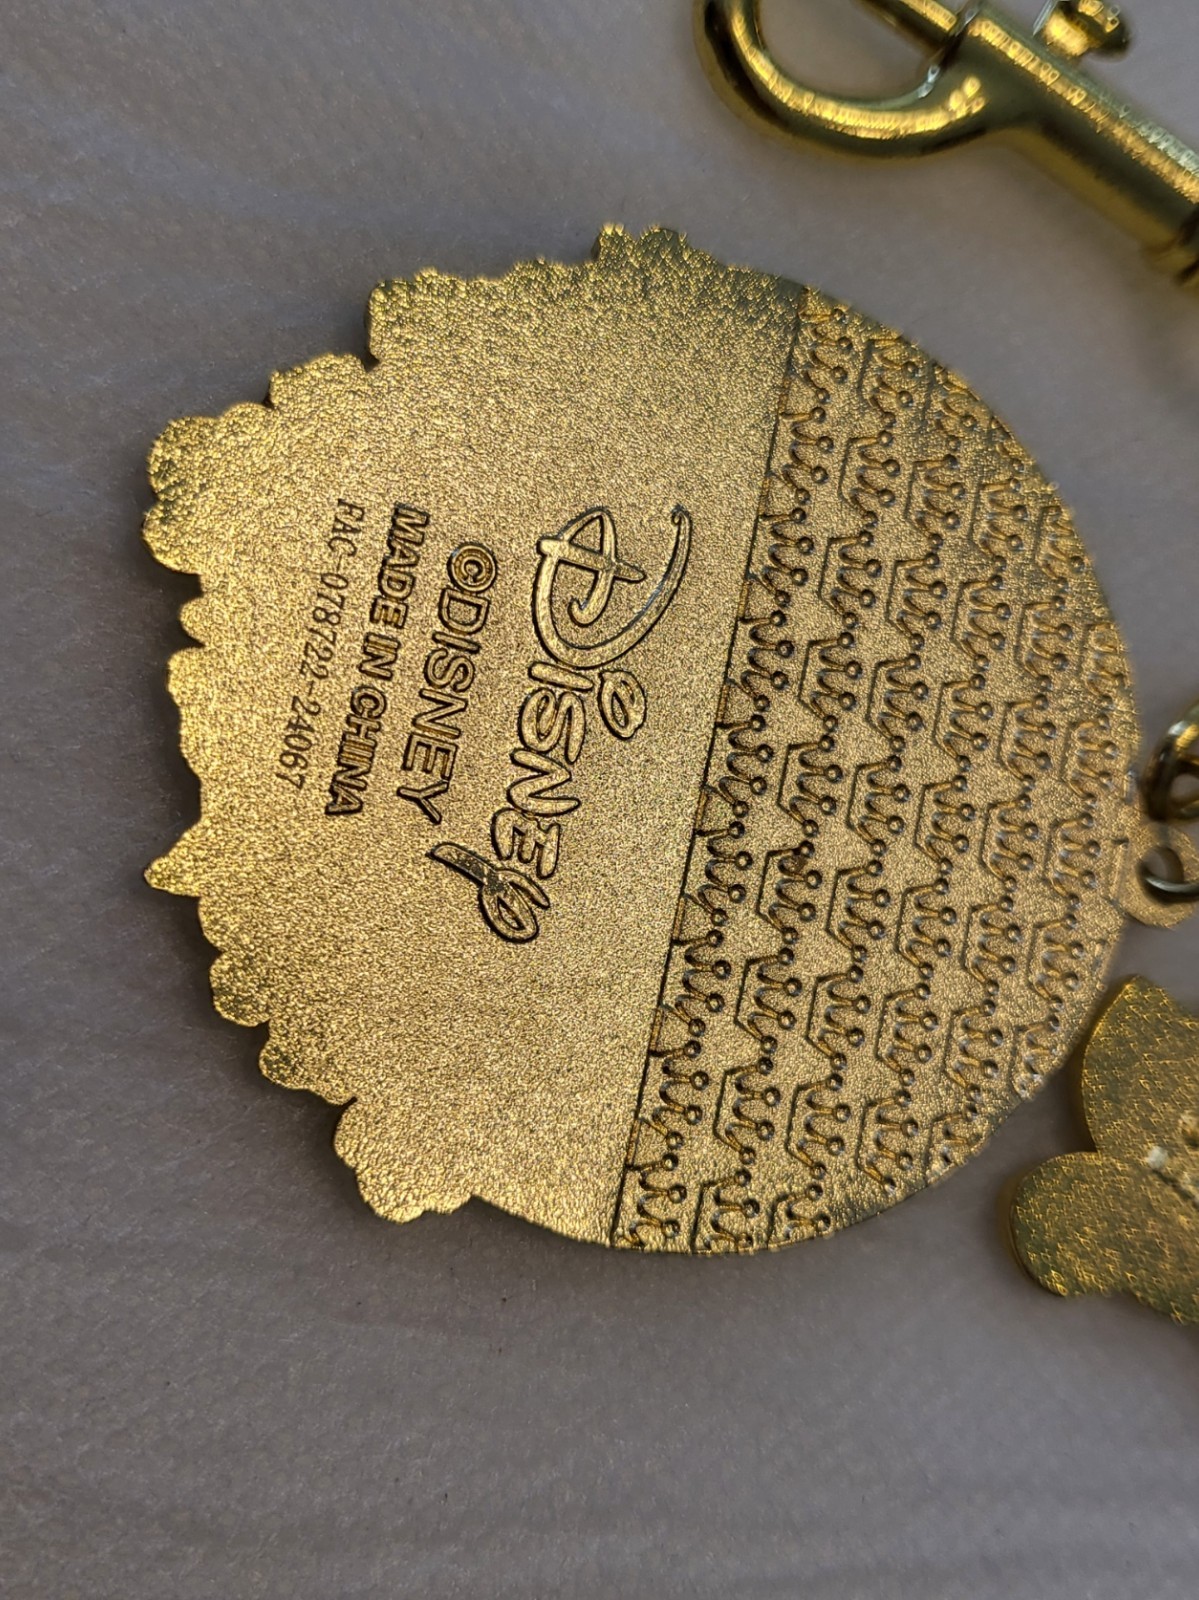 Disney
©DISNEY
MADE IN CHINA
FAC-078722-24067